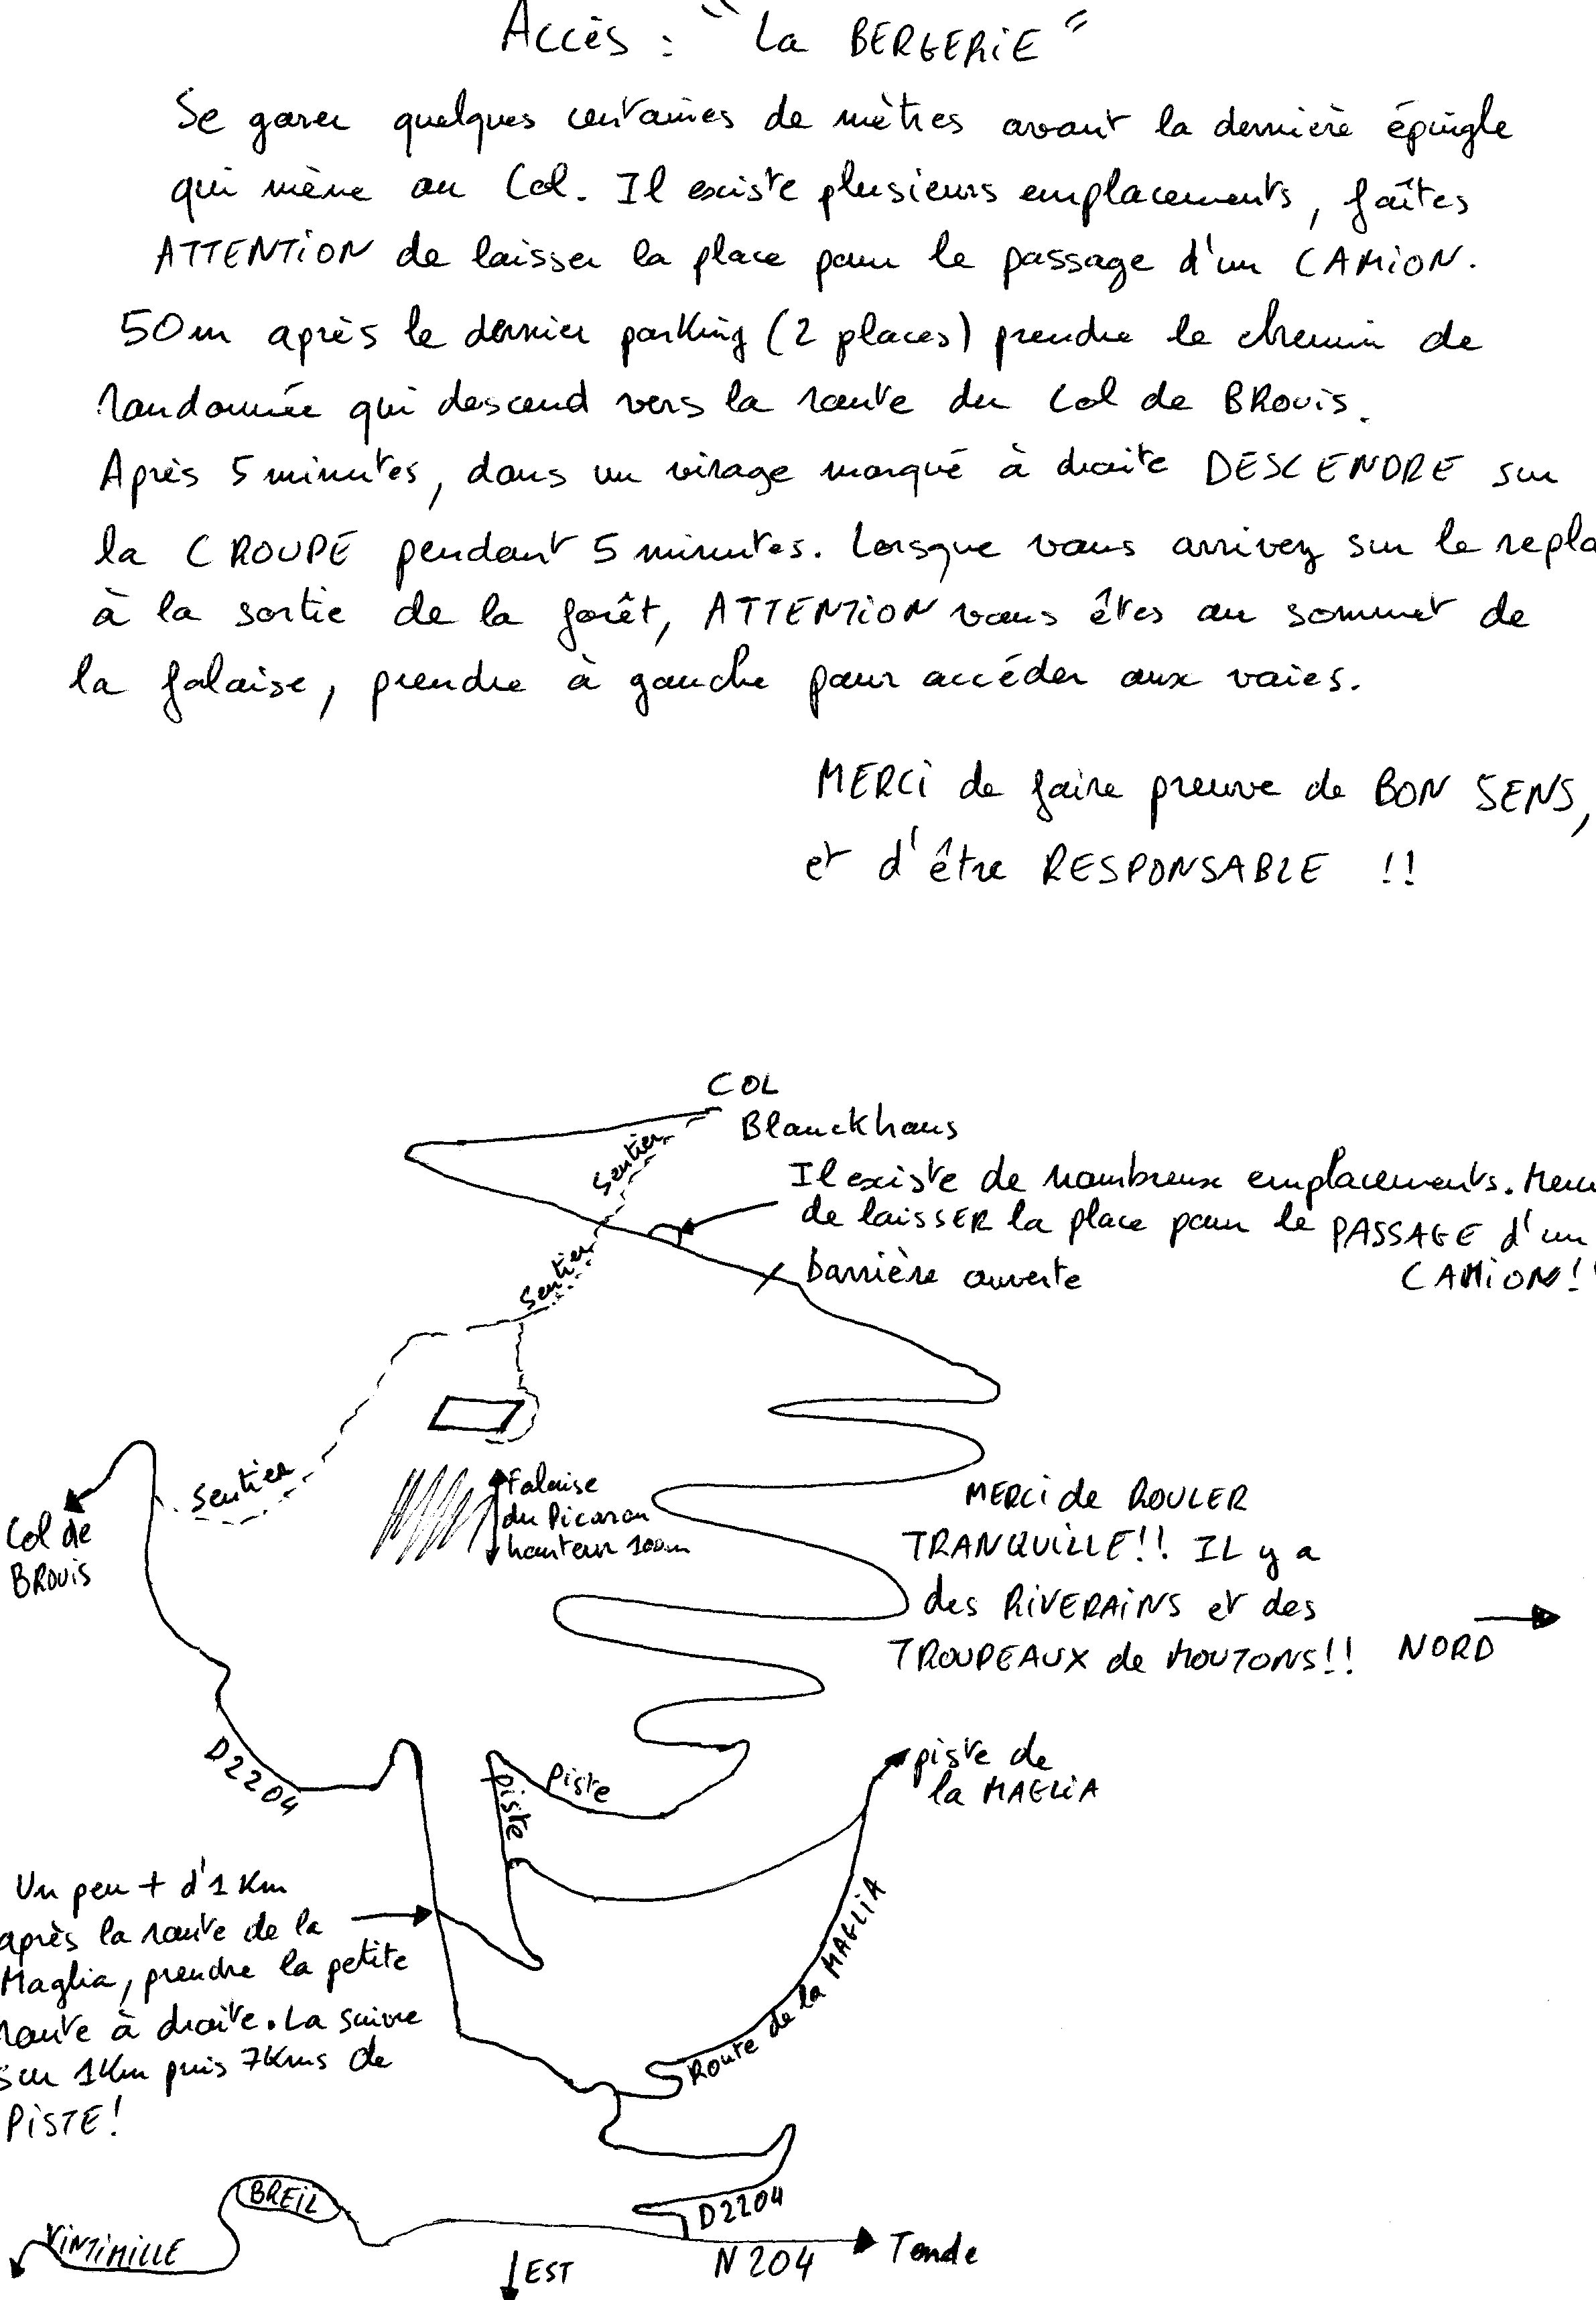 Accès : "La BERGERIE"
Se garer quelques centaines de mètres avant la dernière épingle
qui mène au Col. Il existe plusieurs emplacements, faîtes
ATTENTION de laisser la place pour le passage d'un CAMION.
50m après le dernier parking (2 places) prendre le chemin de
randonnée qui descend vers la route du Col de BROUIS.
Après 5 minutes, dans un virage marqué à droite DESCENDRE sur
la CROUPE pendant 5 minutes. Lorsque vous arrivez sur le repla
à la sortie de la forêt, ATTENTION vous êtes au sommet de
la falaise, prendre à gauche pour accéder aux voies.
MERCI de faire preuve de BON SENS,
et d'être RESPONSABLE !!
COL
Blanckhaus
Sentier
Il existe de nombreux emplacements. Merci
de laisSER la place pour le PASSAGE d'un
CAMION!!
Sentier
barrière ouverte
Sentier
Falaise
du Picaron
hauteur 100m
Col de
BROUIS
MERCI de ROULER
TRANQUILLE!! IL y a
des RIVERAINS et des
TROUPEAUX de MOUTONS!!
NORD
D2204
piste
Piste
piste de
la MAGLIA
Un peu + d'1 Km
après la route de la
Maglia, prendre la petite
route à droite. La suivre
sur 1Km puis 7Kms de
PISTE!
Route de la MAGLIA
BREIL
D2204
VINTIMILLE
N204
Tende
EST